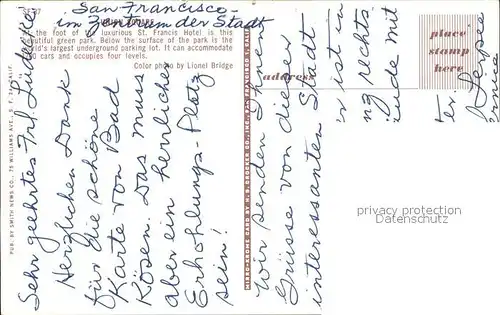 San Francisco -
im Zentrum der Stadt
SF-97
UNION SQUARE
At the foot of the luxurious St. Francis Hotel is this
beautiful green park. Below the surface of the park is the
world's largest underground parking lot. It can accommodate
cars and occupies four levels.
Color photo by Lionel Bridge
PUB. BY SMITH NEWS CO., 75 WILLIAMS AVE., S. F. CALIF.
MIRRO-KROME CARD BY H. S. CROCKER CO., INC.
address
place
stamp
here
Sehr geehrtes Frl. Lüdecke
Herzlichen Dank
für die schöne
Karte von Bad
Kösen. Das muss
aber ein herrlicher
Erhohlungs-Platz
sein!
Wir senden Ihnen
Grüsse von dieser
interessanten Stadt
ist in
ng rechts
ude mit
er.
privacy protection
Datenschutz